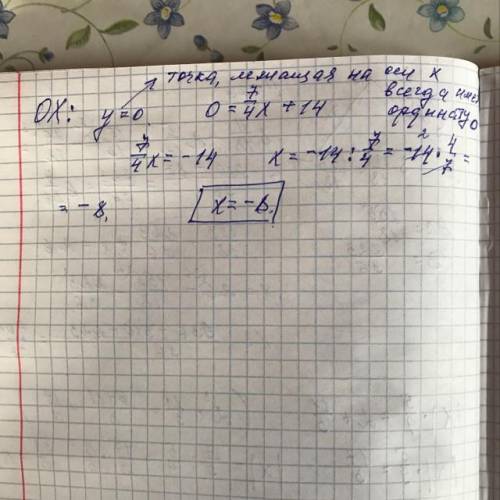 точка, лежащая на оси x
всегда имеет
ординату 0
OX: y=0 0 = 7/4 x + 14
7/4 x = -14 x = -14 : 7/4 = -14 2 · 4/7 =
= -8, x = -8.